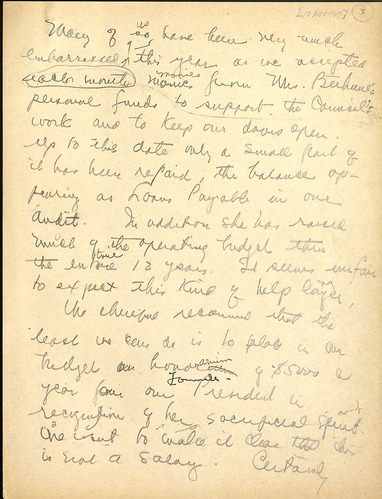 3
Many of us have been very much
embarrassed this year as we accepted
each month monies from Mrs. Bethune's
personal funds to support the Council's
work and to keep our doors open.
Up to this date only a small part of
it has been repaid, the balance ap-
pearing as Loans Payable in our
Audit. In addition she has raised
much of the operating budget thru
the entire 12 years. It seems unfair
to expect this kind of help longer.
We therefore recommend that the
least we can do is to place in our
budget an honorarium of $5000 a
year for our Founder- President in
recognition of her sacrificial spirit.
We want to make it clear that this
is not a salary. Certainly